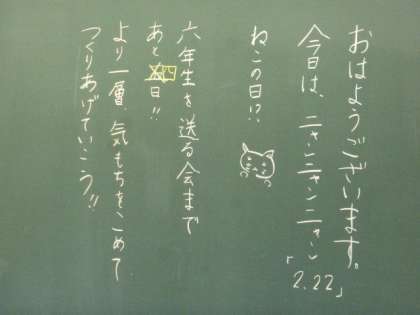 おはようございます。
今日は、ニャンニャンニャン
「2.22」
ねこの日!?
六年生を送る会まで
あと四日!!
より一層、気もちをこめて
つくりあげていこう!!